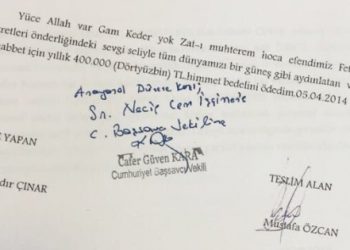 Yüce Allah var Gam Keder yok Zat-ı muhterem hoca efendimiz Fe
retleri önderliğindeki sevgi seliyle tüm dünyamızı bir güneş gibi aydınlatan v
abbet için yıllık 400.000 (Dörtyüzbin) TL.himmet bedelini ödedim.05.04.2014
Anayasal Düzene Karşı
Sn. Necip Cem İşçimen'e
C. Başsavcı Vekiline
YAPAN
Cafer Güven KARA
Cumhuriyet Başsavcı Vekili
TESLİM ALAN
dır ÇINAR
Mustafa ÖZCAN